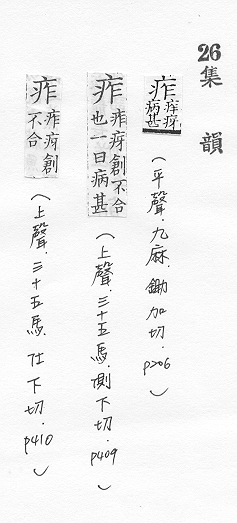 26
集韻
痄 痄疨病甚
（平聲．九麻．鋤加切．p206）
痄 痄疨創不合也一曰病甚
（上聲．三十五馬．側下切．p409）
痄 痄疨創不合
（上聲．三十五馬．仕下切．p410）